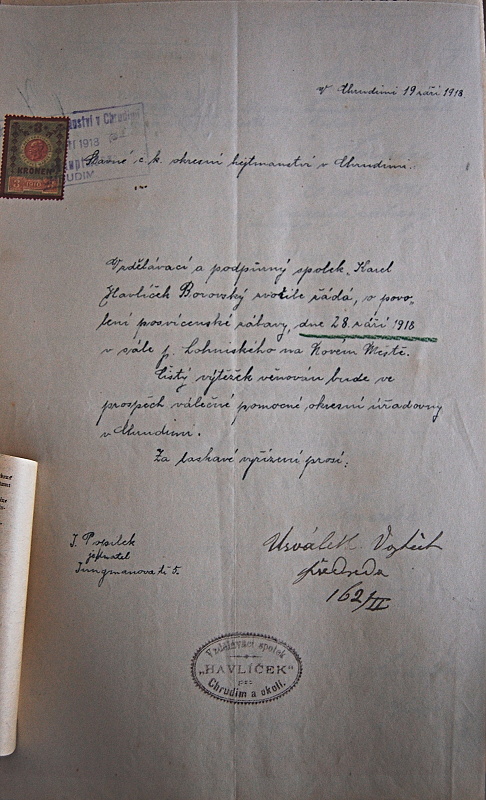 V Chrudimi 19 září 1918.
nství v Chrudimi
ří 1918
UDIM
KRONEN
1910
Slavné c. k. okresní hejtmanství v Chrudimi.
Vzdělávací a podpůrný spolek „Karel
Havlíček Borovský zvolile žádá, o povo„
lení posvícenské zábavy, dne 28. září 1918
v sále p. Lohniského na Novém Městě.
Čistý výtěžek věnován bude ve
prospěch válečné pomocné okresní úřadovny
v Chrudimi.
Za laskavé vyřízení prosí:
J. Pospílek
jednatel
Jungmanova tř 5.
Usválek Vojtěch
předseda
162/II
Vzdělávací spolek
„HAVLÍČEK"
pro
Chrudim a okolí.